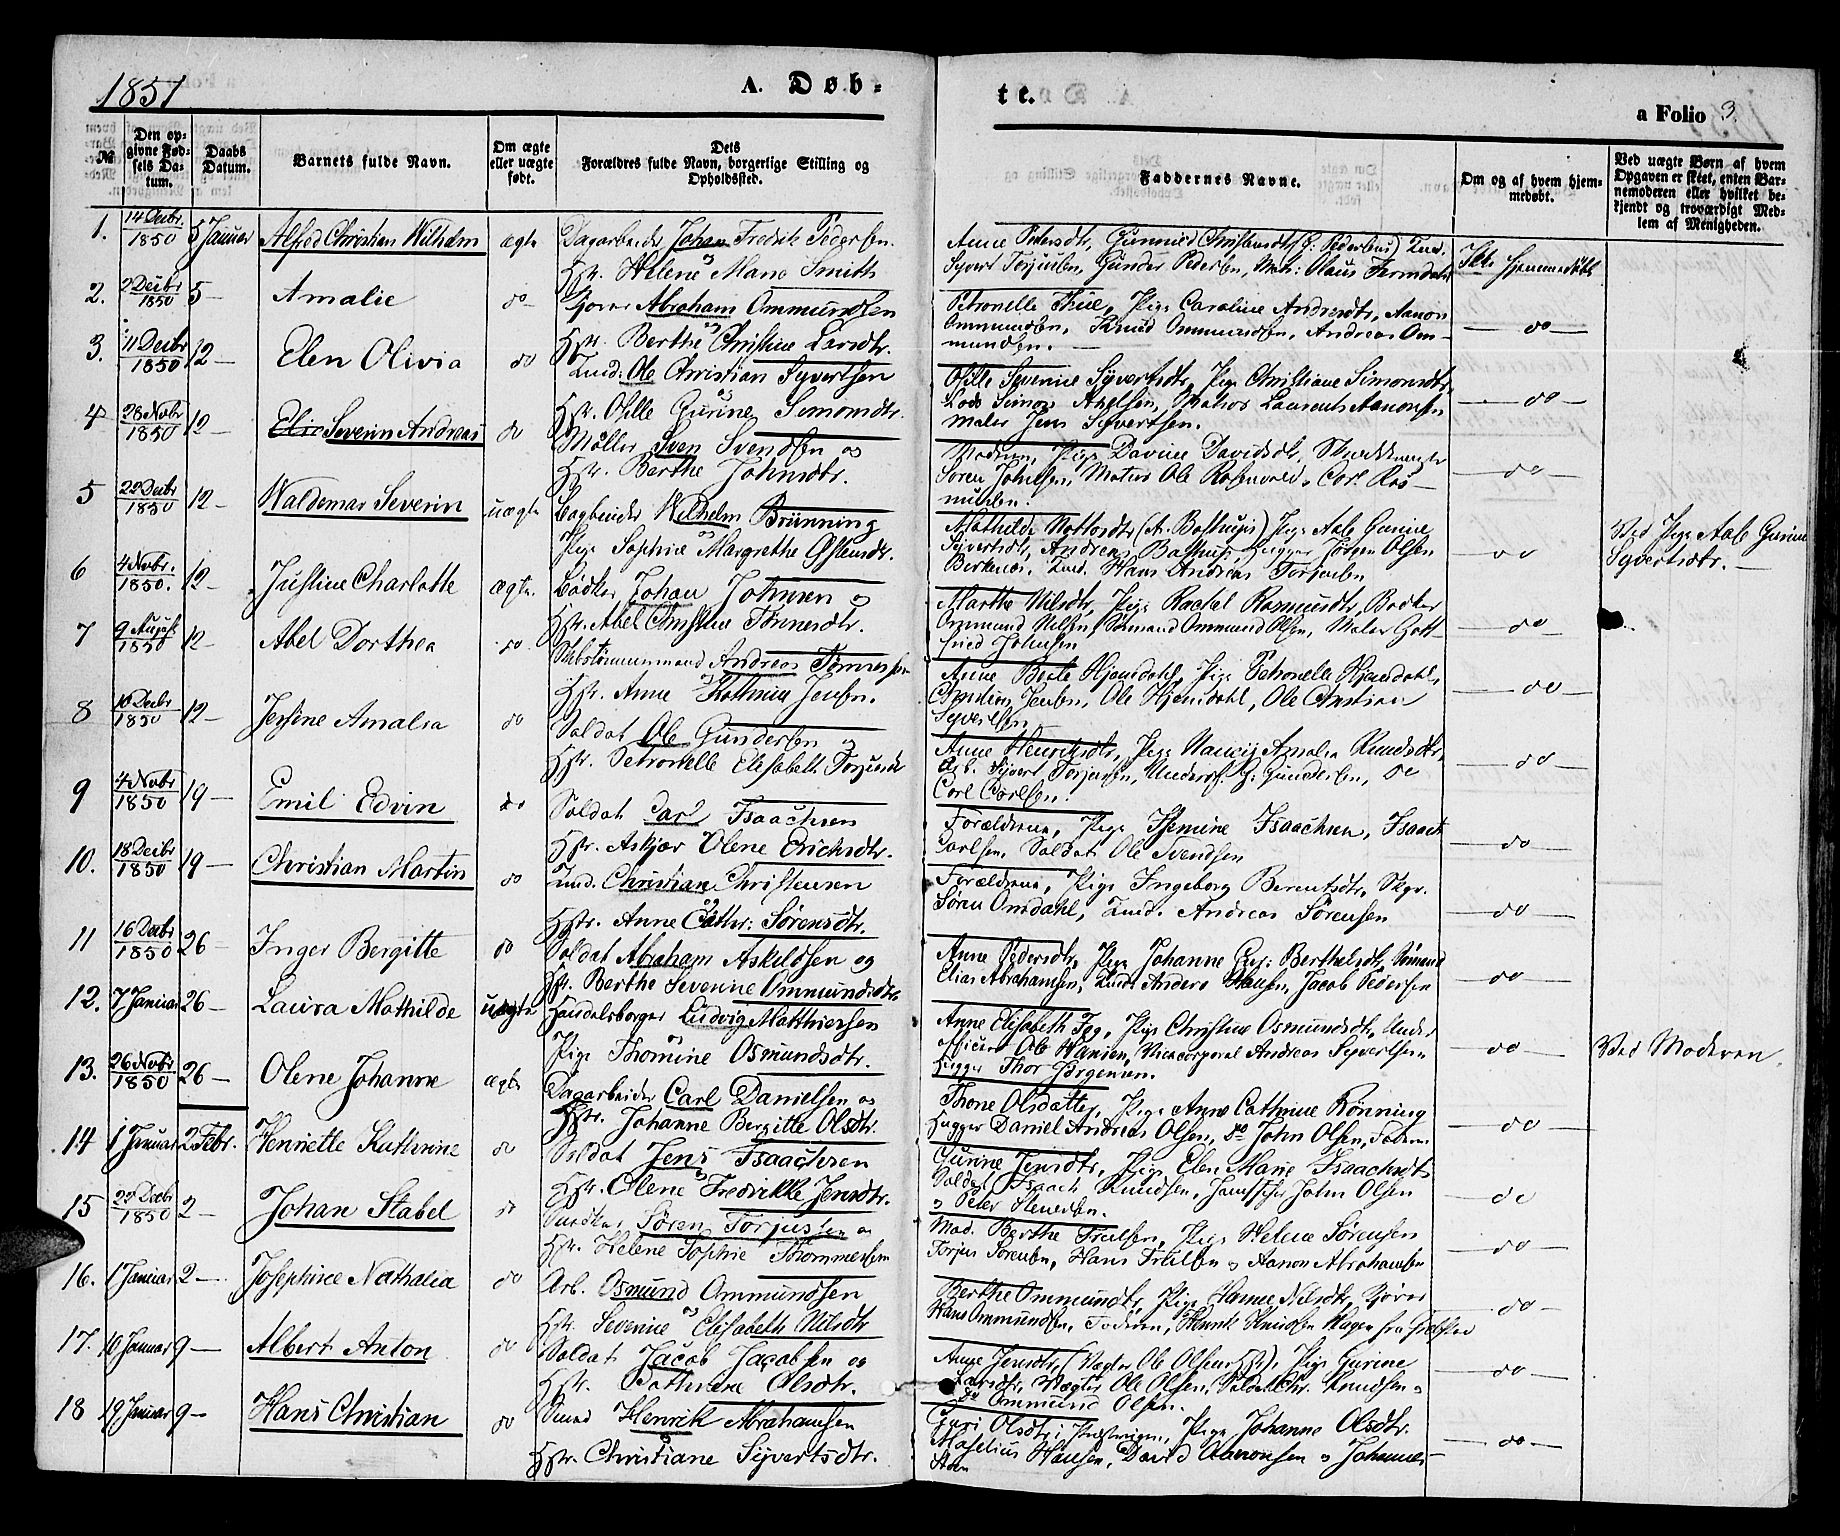 1851
A. Døb-
te.
a Folio 3.
№
Den op-
givne Fød-
sels Da-
tum.
Daabs
Datum.
Barnets fulde Navn.
Om ægte
eller uægte
født.
Dets
Forældres fulde Navn, borgerlige Stilling og
Opholdssted.
Faddernes Navne.
Om og af hvem hjem-
medøbt.
Ved uægte Børn af hvem
Opgaven er skeet, enten Bar-
nemoderen eller hvilket be-
kjendt og troværdigt Med-
lem af Menigheden.
1. 14 Decbr. 1850 5 Januar Alfred Christian Wilhelm ægte Dagarbeider Johan Fredrik Pedersen
Hstr. Helene Marie Smith
Anne Petersdtr, Gunnild Christiansdtr (G. Pedersens)
Syvert Torjusen, Gunder Pedersen, Olaus
Ikke hjemmedøbt
2. 2 Decbr 1850 5 — Amalie do — Gjører Abraham Ommundsen
Hstr. Berthe Christine Larsdtr.
Petronelle Pige Caroline Andersdtr, Aanon
Ommundsen, Knud Ommundsen, Andreas Om-
mundsen. — do —
3. 11 Decbr 1850 12 — Elen Olivia do Ole Christian Syvertsen
Hstr. Osille Gurine Simonsdtr.
Osille Severine Syvertsdtr, Pige Christiane Simonsdtr,
Lods Simon Axelsen, Matros Laurents Aanonsen
Maler Jens Syvertsen. — do —
4 28 Novbr 1850 12 — Severin Andreas do Møller Sven Svendsen og
Hstr. Berthe Johnsdtr.
Moderen, Pige Davine Davidsdtr,
Søren Johnsen, Matros Ole Rosenvold, Carl Ras-
mussen. — do —
5 22 Decbr 1850 12 — Waldemar Severin uægte Bogbinder Wilhelm Brünning
Pige Sophie Margrethe
Mathilde (A. Bolthugs) Pige Aale Gurine
Syvertsdtr, Andreas Hugger Jørgen Olsen
Birkenes, Hans Andreas Torjusen
do
Ved Pige Aale Gurine
Syvertsdtr. —
6 4 Novbr. 1850. 12 — Justine Charlotte ægte. Bødker Johan Johnsen og
Hstr. Abel Christine Tønnesdtr.
Marthe Nilsdtr, Pige Rachel Rasmusdtr, Bødker
Ommund Nilsen, Sømand Ommund Olsen, Maler Gott-
fried Johnsen — do —
7 9 August 1850 12 — Abel Dorthea do. Skibstømmermand Andreas Tønnessen
Hstr. Anne Kathrine Jensen.
Anne Berte Hjemdahl, Pige Petronelle Hjemdahl,
Christian Jensen, Ole Hjemdahl, Ole Christian
Syvertsen — do —
8 10 Decbr 1850 12 — Jesine Amalia do Soldat Ole Gundersen og
Hstr. Petronelle Elisabeth Torjusdtr
Anne Henriksdtr, Pige Nancy Amalia Knudsdtr,
Arb. Syvert Torjusen, Underof. G. Gundersen, do
Carl Carlsen. — do —
9 4 Novbr 1850 19 — Emil Edvin do Soldat Carl Isaachsen
Hstr. Askjær Olene Erichsdtr.
Forældrene, Pige Jsemine Isaachsen, Isaach
Carlsen, Soldat Ole Svendsen — do —
10. 18 Decbr 1850 19 — Christian Martin do Christian Christensen
Hstr. Anne Cathr: Sørensdtr.
Forældrene, Pige Ingeborg Berentsdtr,
Søren Omdahl, Andreas Sørensen — do —
11 16 Decbr 1850 26 — Inger Bergitte do Soldat Abraham Askeldsen og
Hstr. Berthe Severine Ommundsdtr.
Anne Pedersdtr, Pige Johanne Berthelsdtr, Sømand
Elias Abrahamsen, Anders Hansen, Jacob Pedersen do
12. 7 Januar 26 — Laura Mathilde uægte Handelsborger Ludvig Matthiesen
Pige Thomine Osmundsdtr.
Anne Elisabeth Fog, Pige Christine Osmundsdtr, Under-
officer Ole Hansen, Vicecorporal Andreas Syvertsen
Hugger Thor Jørgensen. — do —
Ved Moderen
13. 26 Novbr 1850 26 — Olene Johanne ægte Dagarbeider Carl Danielsen og
Hstr. Johanne Bergitte Olsdtr.
Thone Olsdatter, Pige Anne Cathrine Rønning
Hugger Daniel Andreas Olsen, do John Olsen, Faderen — do —
14 1 Januar 2 Febr. Henriette Kathrine do Soldat Jens Isaachsen
Hstr. Olene Fredrikke Jensdtr.
Gurine Jensdtr, Pige Elen Marie Isaachsdtr
Soldat Isaach Knudsen, John Olsen
Peter Stenersen. — do
15 22 Decbr 1850 2 — Johan Stabel do Snedker Søren Torjussen og
Hstr. Helene Sophie Thommesen
Mad. Berthe Troelsen, Pige Helene Sørensen
Torjus Sørensen, Hans Troelsen Aanon Abrahamsen — do —
16. 1 Januar 2 —. Josephine Nathalia do Arb. Osmund Ommundsen
Hstr. Severine Elisabeth Nilsdtr
Berthe Ommundsdtr, Pige Hanne Nilsdtr, Gjører
Hans Ommundsen, Faderen, Henrik Knudsen fra — do —
17. 10 Januar 9 — Albert Anton do Soldat Jacob Jacobsen og
Hstr. Cathrine Olsdtr.
Anne Jensdtr, (Vægter Ole Olsens Hstr), Pige Gurine
Larsdtr, Vægter Ole Olsen, Soldat Chr. Knudsen
do Ommund Olsen. — do —
18 19 Januar 9 — Hans Christian do Smed Henrik Abrahamsen
Hstr. Christiane Syvertsdtr.
Guri Olsdtr, Pige Johanne Olsdtr.
Maselius Hansen, David Aanonsen Johannes — do —